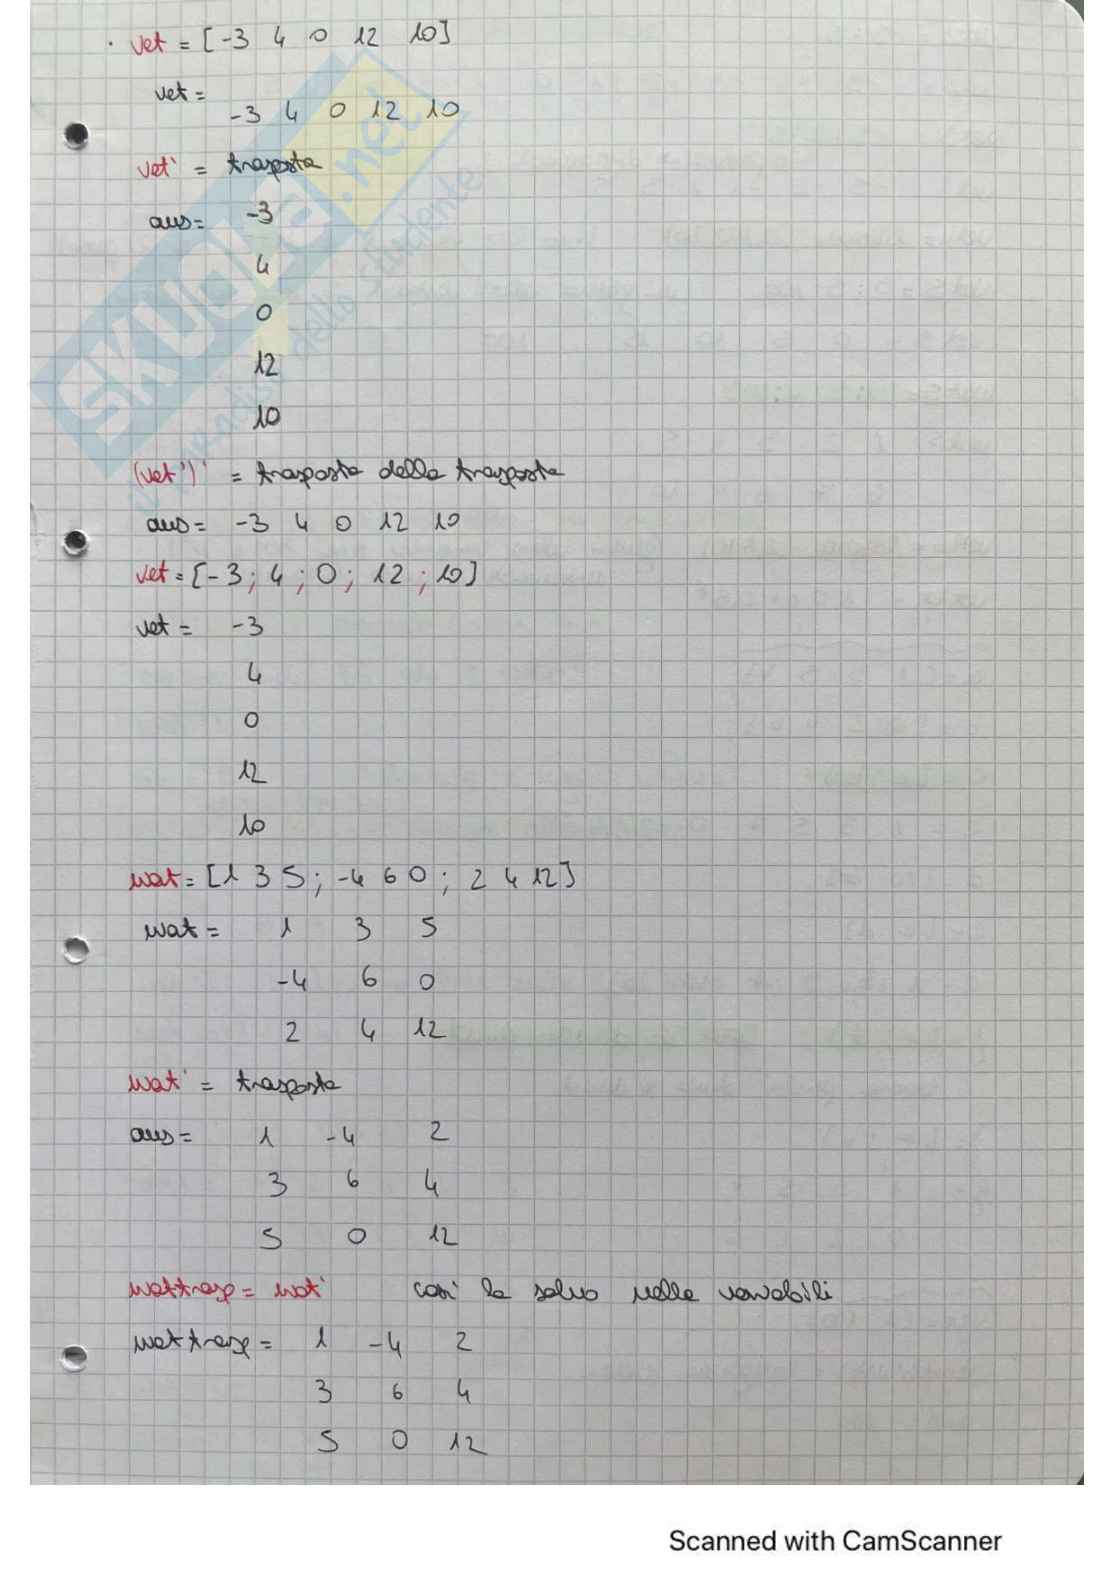 · vet = [-3 4 0 12 10]
vet =
-3 4 0 12 10
vet' = trasposta
ans = -3
4
0
12
10
(vet')' = trasposta della trasposta
ans = -3 4 0 12 10
vet = [-3; 4; 0; 12; 10]
vet = -3
4
0
12
10
mat = [1 3 5; -4 6 0; 2 4 12]
mat = 1 3 5
-4 6 0
2 4 12
mat' = trasposta
ans = 1 -4 2
3 6 4
5 0 12
mattrasp = mat' così la salvo nelle variabili
mattrasp = 1 -4 2
3 6 4
5 0 12
SKUOLA.net
dello studente
Scanned with CamScanner